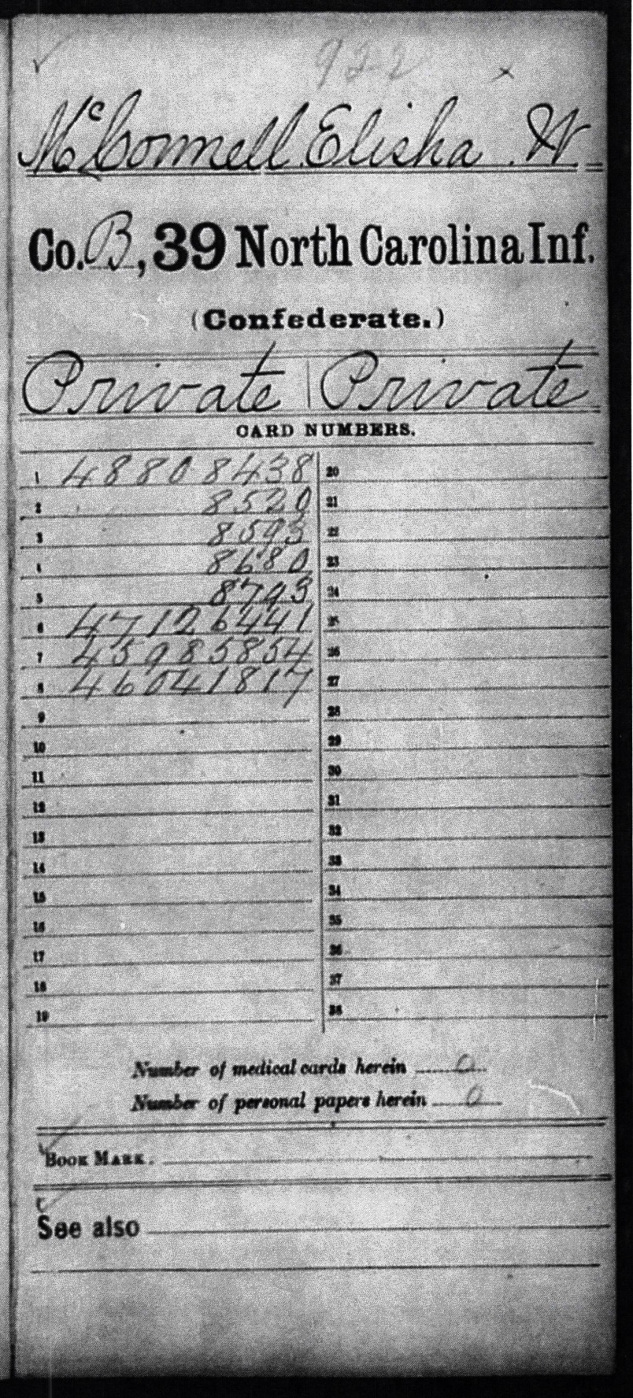 922
McConnell, Elisha W.
Co. B, 39 North Carolina Inf.
(Confederate.)
Private | Private
CARD NUMBERS.
1 48808438 20
2 8520 21
3 8593 22
4 8680 23
5 8793 24
6 47126441 25
7 45985854 26
8 46041817 27
9 28
10 29
11 30
12 31
13 32
14 33
15 34
16 35
17 36
18 37
19 38
Number of medical cards herein 0
Number of personal papers herein 0
BOOK MARK:
See also